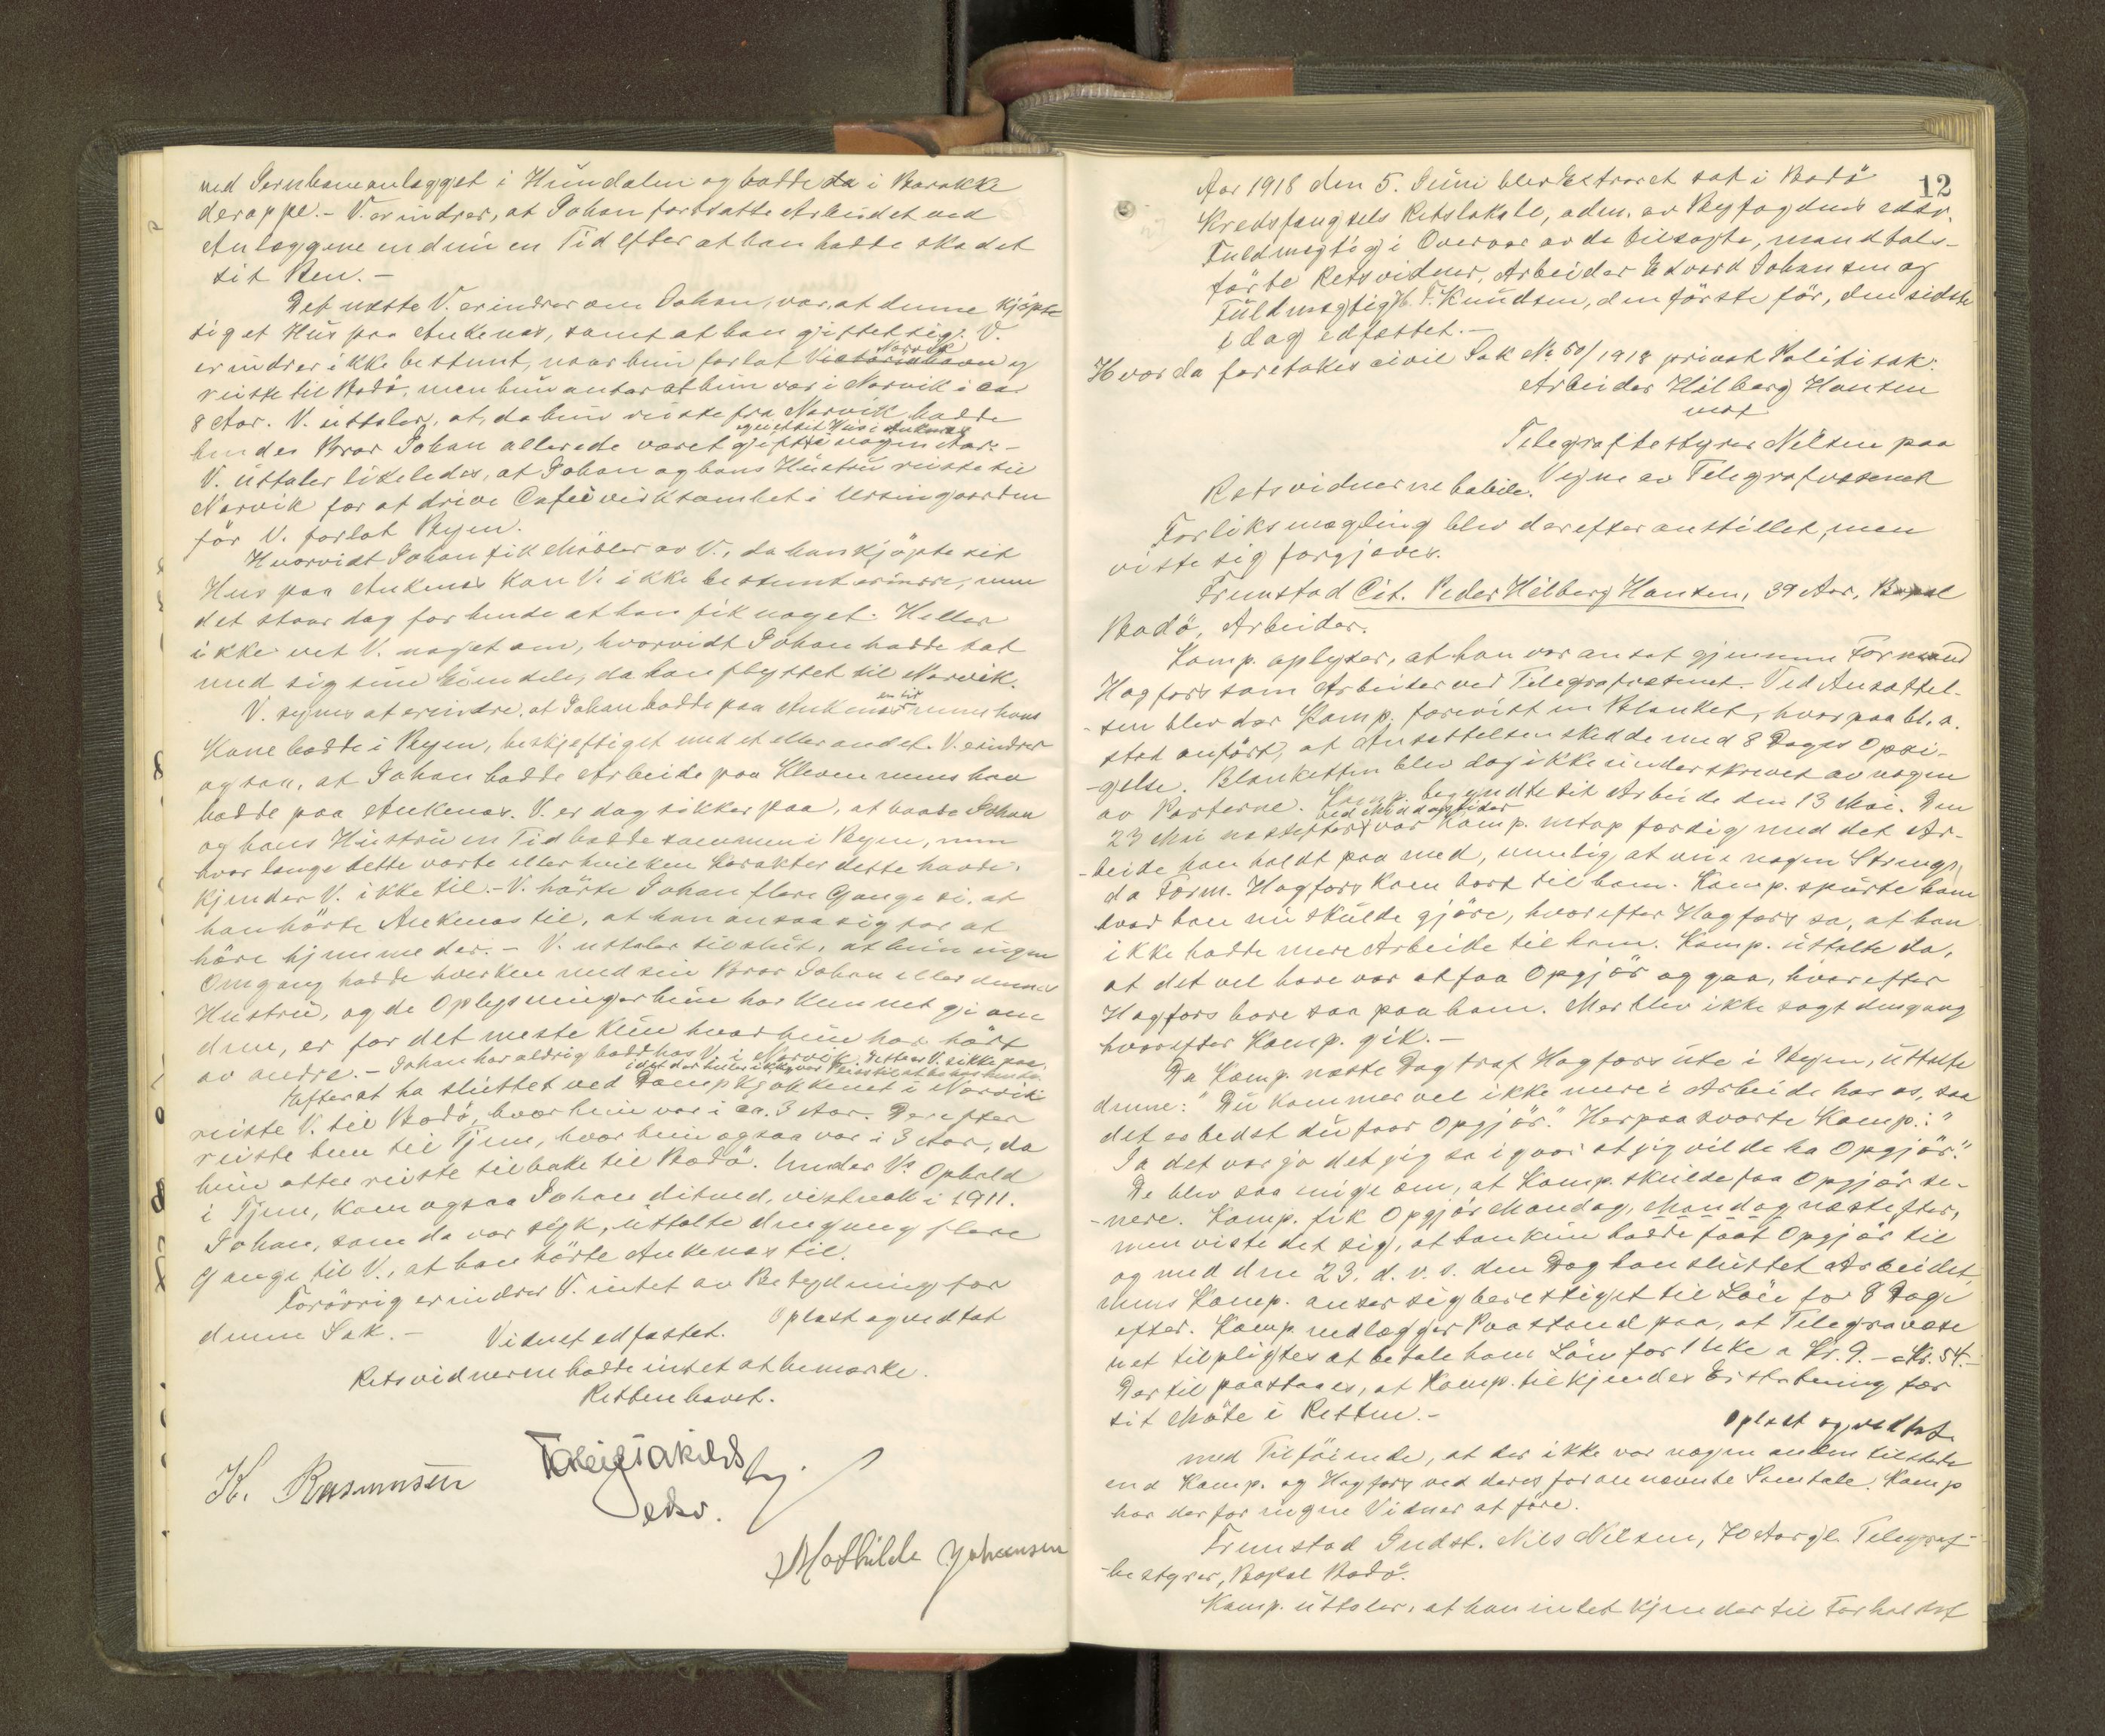 ved Jernbaneanlægget i Hundalen og bodde da i Barakke
deroppe.- V. erindrer, at Johan fortsatte Arbeidet ved
Anlæggene endnu en Tid efter at han hadde skadet
sit Ben.-
Det næste V. erindrer om Johan, var, at denne kjøpte
sig et Hus paa Ankenes, samt at han giftet sig. V.
Narvik
erindrer ikke bestemt, naar hun forlot Victoriahavn og
reiste til Bodö, men hun antar at hun var i Narvik i ca
8 Aar. V. uttaler, at, da hun reiste fra Narvik hadde
og eiet sit Hus i Ankenes
hendes Bror Johan allerede været gift i nogen Aar.-
V. uttaler likeledes, at Johan og hans Hustru reiste til
Narvik for at drive Cafeivirksomhet i Ursingaarden
för V. forlot Byen.
Hvorvidt Johan fik Möbler av V., da han kjöpte sit
Hus paa Ankenes kan V. ikke bestemt erindre, men
det staar dog for hende at han fik noget. Heller
ikke vet V. noget om, hvorvidt Johan hadde tat
med sig sine Eiendele, da han flyttet til Narvik.
en tid
V. synes at erindre, at Johan bodde paa Ankenes mens hans
Kone bodde i Byen, beskjeftiget med et eller andet. V. erindrer
ogsaa, at Johan hadde Arbeide paa Kleven mens han
bodde paa Ankenes. V. er dog sikker paa, at baade Johan
og hans Hustru en Tid bodde sammen i Byen, men
hvor længe dette varte eller hvilken Karakter dette havde,
kjender V. ikke til.- V. hörte Johan flere Gange si, at
han hörte Ankenes til, at han ansaa sig for at
höre hjemme der.- V. uttaler tilslut, at hun ingen
Omgang hadde hverken med sin Bror Johan eller dennes
Hustru, og de Oplysninger hun har kunnet gi om
dem, er for det meste kun hvad hun har hört
av andre.- Johan har aldrig bodd hos V. i Narvik.
Efter at ha sluttet ved Dampkjökkenet i Narvik
reiste V. til Bodö, hvor hun var i ca. 3 Aar. Derefter
reiste hun til Tjæn, hvor hun ogsaa var i 3 Aar, da
hun atter reiste tilbake til Bodö. Under V.s Ophold
i Tjæn, kom ogsaa Johan ditned, vistnok i 1911.
Johan, som da var syk, uttalte dengang flere
Gange til V., at han hörte Ankenes til.
Forövrig erindrer V. intet av Betydning for
denne Sak.- Oplæst og vedtat
Vidnet edfæstet.
Retsvidnerne hadde intet at bemærke.
Retten hævet.
K. Rasmussen
edsv.
Mathilde Johansen
12
Aar 1918 den 5. Juni blev Extraret sat i Bodö
Kredsfængsels Retslokale, adm. av Byfogdens edsv.
Fuldmægtig i Overvær av de tilsagte, mandtals-
förte Retsvidner, Arbeider Edvard Johansen og
Fuldmægtig H. F. Knudsen, den förste för, den sidste
idag edfæstet.-
Hvor da foretokes civil Sak No 50/1918 privat Politisak:
Arbeider Hilberg Hansen
mot
Telegrafbestyrer Nilsen paa
Vegne av Telegrafvæsenet
Retsvidnerne habile.
Forliksmægling blev derefter anstillet, men
viste sig forgjæves.
Fremstod Cit. Peder Hilberg Hansen, 39 Aar, Bopæl
Bodö, Arbeider.
Komp. oplyser, at han var ansat gjennem Formand
Hagfors som Arbeider ved Telegrafvæsenet. Ved Ansættel-
-sen blev der Komp. forevist en Blanket, hvorpaa bl. a.
stod anfört, at Ansættelsen skedde med 8 Dages Opsi-
-gelse. Blanketten blev dog ikke underskrevet av nogen
av Parterne. Komp. begyndte sit Arbeide den 13 Mai. Den
ved Middagstider
23 Mai næstefter var Komp. netop færdig med det Ar-
-beide han holdt paa med, nemlig at vin nogen Streng,
da Form. Hagfors kom bort til ham. Komp. spurte ham
hvad han nu skulde gjöre, hvorefter Hagfors sa, at han
ikke hadde mere Arbeide til ham. Komp. uttalte da,
at det vel bare var at faa Opgjör og gaa, hvorefter
Hagfors bare saa paa ham. Mer blev ikke sagt dengang
hvorefter Komp. gik.-
Da Komp. næste Dag traf Hagfors ute i Byen, uttalte
denne: "Du kommer vel ikke mere i Arbeide hos os, saa
det er bedst du faar Opgjör." Herpaa svarte Komp.: "
Ja det var jo det jeg sa igaar at jeg vilde ha Opgjör."
De blev saa enige om, at Komp. skulde faa Opgjör se-
-nere. Komp. fik Opgjör Mandag, Mandag næstefter,
men viste det sig, at han kun hadde faat Opgjör til
og med den 23. d. v. s. den Dag han sluttet Arbeidet,
mens Komp. anser sig berettiget til Lön for 8 Dage
efter. Komp. nedlægger Paastand paa, at Telegrafvæse
net tilpligtes at betale ham Lön for 1 Uke a Kr. 9.- = Kr. 54.-
Dertil paastaaes, at Komp. tilkjendes Erstatning for
sit Möte i Retten.-
Oplæst og vedtat
med Tilföiende, at der ikke var nogen anden tilstede
end Komp. og Hagfors ved deres forannævnte Samtale. Komp
har derfor ingen Vidner at före.
Fremstod Indst. Nils Nilsen, 70 Aar gl. Telegraf-
-bestyrer, Bopæl Bodö.
Komp. uttaler, at han intet kjender til Forholdet